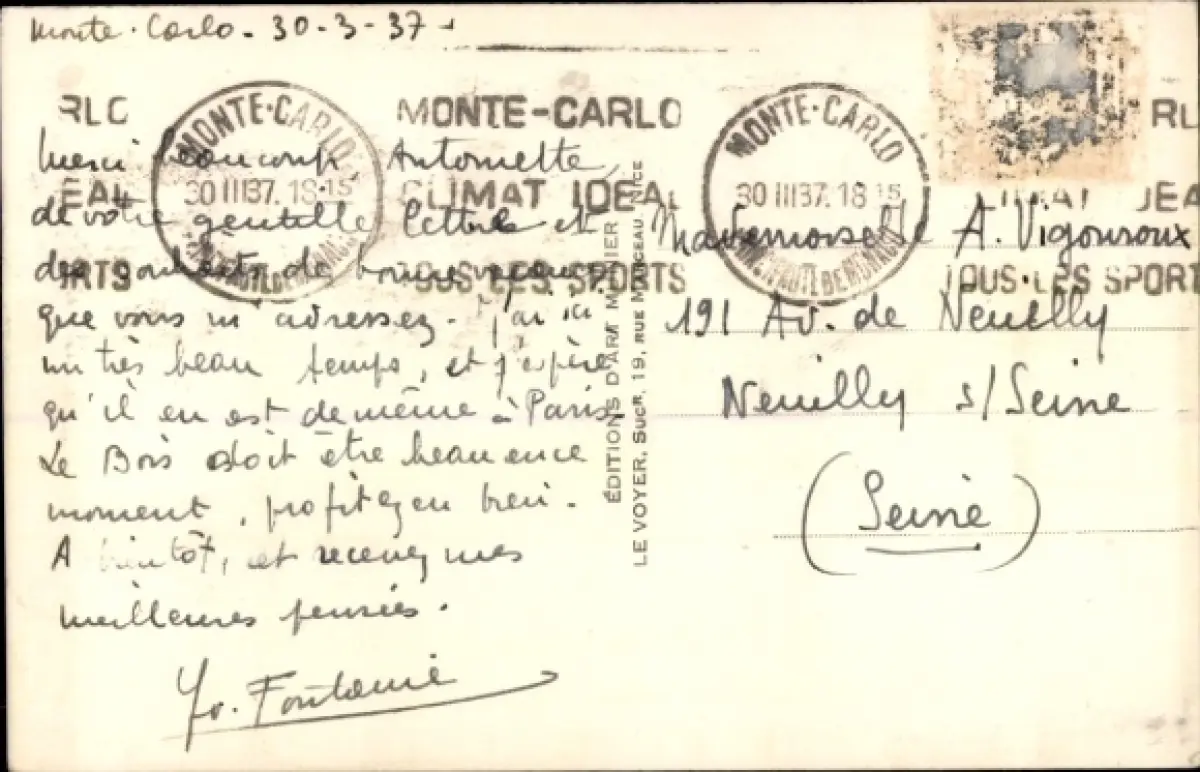 Monte-Carlo - 30-3-37 -
RLO
MONTE-CARLO
MONTE-CARLO
MONTE-CARLO
RL
ÉAL
30 III 37. 18 15
CLIMAT IDEAL
30 III 37. 18 15
CLIMAT IDEA
ORTS
TOUS LES SPORTS
TOUS LES SPORT
Merci beaucoup, Antoinette,
de votre gentille lettre et
des souhaits de bonnes vacances
que vous m'adressez. J'ai ici
un très beau temps, et j'espère
qu'il en est de même à Paris.
Le Bois doit être beau en ce
moment, profitez en bien.
A bientôt, et recevez mes
meilleures pensées.
Yo. Fontaine
ÉDITIONS D'ART MUNIER
LE VOYER, Sucr, 19, RUE MARCEAU NICE
Mademoiselle A. Vigouroux
191 Av. de Neuilly
Neuilly s/Seine
(Seine)